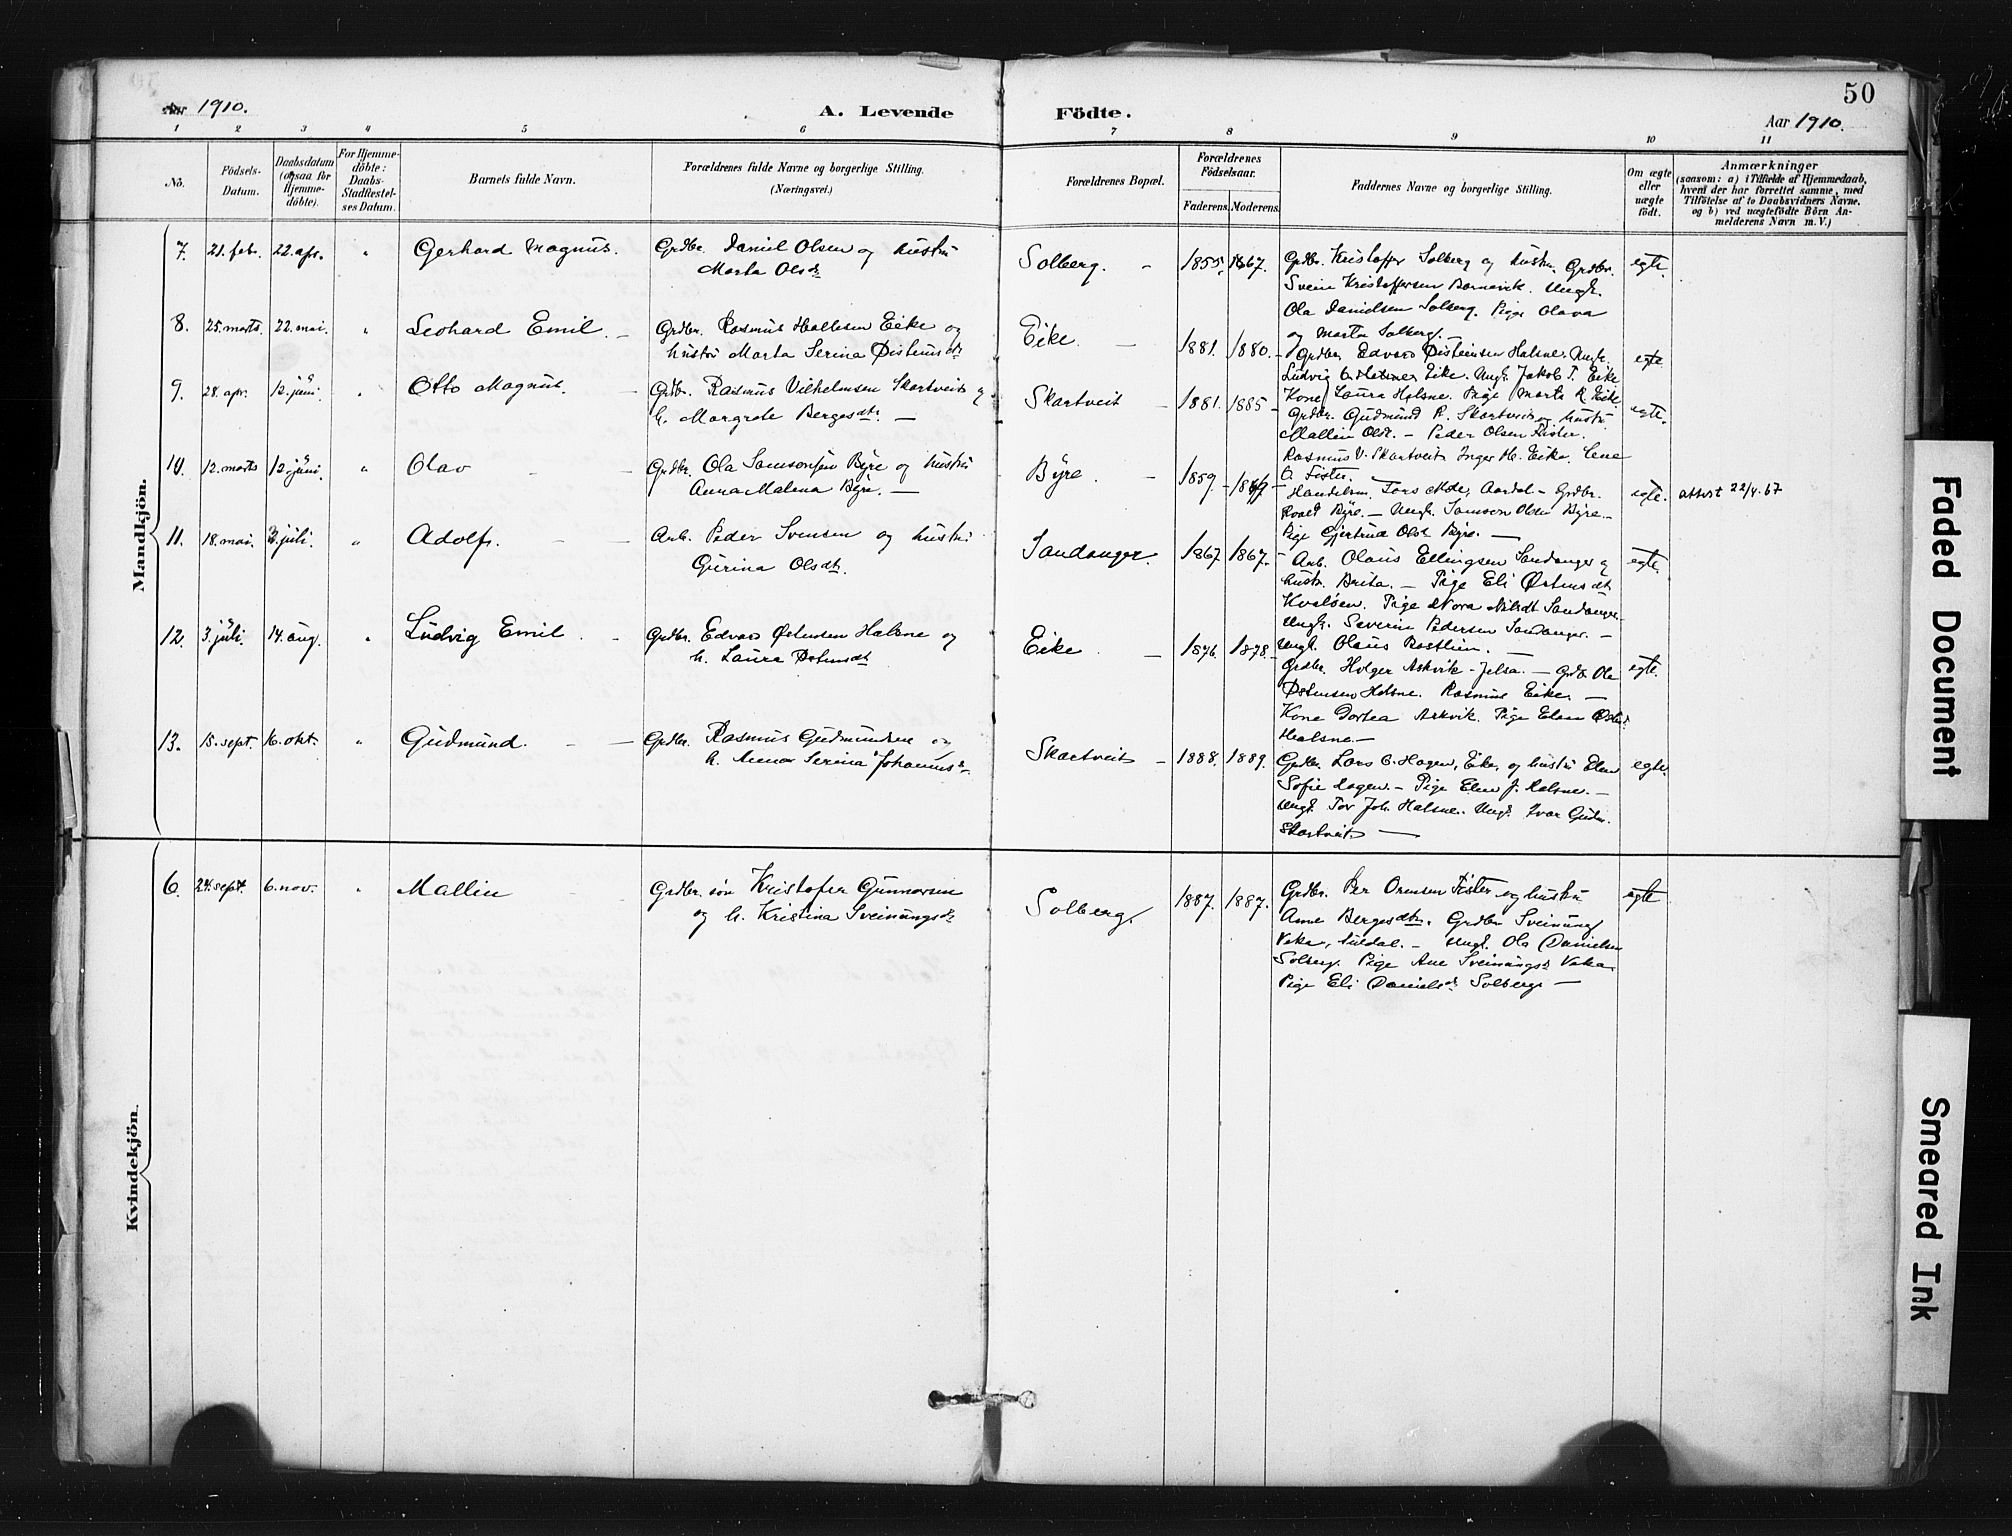 50
Aar 1910.
A. Levende
Födte.
Aar 1910.
1 2 3 4 5 6 7 8 9 10 11
No.
Födsels-
Datum.
Daabsdatum
(ogsaa for
Hjemme-
döbte).
For Hjemme-
döbte:
Daabs-
Stadfæstel-
ses Datum.
Barnets fulde Navn.
Forældrenes fulde Navne og borgerlige Stilling.
(Næringsvei.)
Forældrenes Bopæl.
Forældrenes
Födselsaar.
Faderens.
Moderens.
Faddernes Navne og borgerlige Stilling.
Om ægte
eller
uægte
födt.
Anmærkninger
(saasom: a) i Tilfælde af Hjemmedaab,
hvem der har forrettet samme, med
Tilföielse af to Daabsvidners Navne.
og b) ved uægtefödte Börn An-
melderens Navn m. V.)
Mandkjön.
7. 21. febr. 22. apr. " Gerhard Magnus.
Grdbr. Daniel Olsen og hustru
Marta Olsdtr
Solberg. - 1855. 1867.
Grdbr. Kristoffer Solberg og hustru. Grdbr.
Svein Kristoffersen Barnevik. Ungk.
Ola Danielsen Solberg. Pige Olava
og Marta Solberg. -
egte.
8. 25. marts. 22. mai. " Leohard Emil. -
Grdbr. Rasmus Hallesen Eike og
hustru Marta Serina Østensdtr
Eike. - 1881. 1880.
Grdbr. Edvard Østeinsen Halsne. Ungk.
Ludvig Eike. Ungk. Jakob T. Eike
Kone Laura Halsne. Pige Marta R. Eike
egte
9. 28. apr. 12. juni. " Otto Magnus.
Grdbr. Rasmus Vilhelmsen Skartveit og
h. Margrete Bergesdtr. -
Skartveit - 1881. 1885
Grdbr. Gudmund R. Skartveit og hustru
Mallin Olsdtr. - Peder Olsen Fister.
Rasmus V. Skartveit Inger M. Eike. Lene
O. Fister.
egte.
10. 12. marts 12. juni. " Olav - -
Grdbr. Ola Samsonsen Byre og hustru
Anna Malena Byre. -
Byre. - 1859.
Handelsm. Tore Moe, Aardal - Grdbr.
Roald Byre. - Ungk. Samson Olsen Byre. -
Pige Gjertrud Olsdtr Byre. -
egte. attest 22/4. 67
11. 18. mai. 3. juli. " Adolf. - -
Arb. Peder Svensen og hustru
Gurina Olsdtr.
Sandanger. 1867. 1867. -
Arb. Olaus Ellingsen Sandanger og
hustru Brita. - Pige Eli Østensdtr
Kvaløen. Pige Nora Nilsdtr Sandanger.
Ungk. Severin Pedersen Sandanger. -
Ungk. Olaus Bastlien. -
egte.
12. 3. juli. 14. aug. " Ludvig Emil. -
Grdbr. Edvard Østensen Halsne og
h. Laura Østensdtr
Eike. - 1876. 1878.
Grdbr. Holger Askvik - Jelsa. - Grdbr. Ola
Østensen Halsne. Rasmus Eike. -
Kone Dortea Askvik. Pige Elen
Halsne. -
egte.
13. 15. sept. 16. okt. " Gudmund. - -
Grdbr. Rasmus Gudmundsen og
h. Anna Serina Johannesdtr
Skartveit - 1888. 1889.
Grdbr. Lars B. Hagen, Eike, og hustru Elen
Sofie Hagen. - Pige Elen J. Halsne. -
Ungk. Tor Joh. Halsne. Ungk. Ivar Gudm.
Skartveit. -
egte.
Kvindekjön.
6. 24. sept. 6. nov. " Mallin -
Grdbr. søn Kristofer Gunnarsen
og h. Kristina Sveinungsdtr
Solberg. 1887. 1887.
Grdbr. Per Ormsen Fister og hustru
Anne Bergesdtr. Grdbr Sveinung
Veka, Suldal. - Ungk. Ola Danielsen
Solberg. Pige Ane Sveinungsdtr Veka.
Pige Eli Danielsdtr Solberg -
egte
Faded Document
Smeared Ink